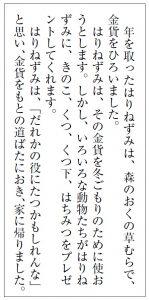 年を取ったはりねずみは、森のおくの草むらで、
金貨をひろいました。
　はりねずみは、その金貨を冬ごもりのために使お
うとします。しかし、いろいろな動物たちがはりね
ずみに、きのこ、くつ、くつ下、はちみつをプレゼ
ントしてくれます。
　はりねずみは、「だれかの役にたつかもしれんな」
と思い、金貨をもとの道ばたにおき、家に帰りました。